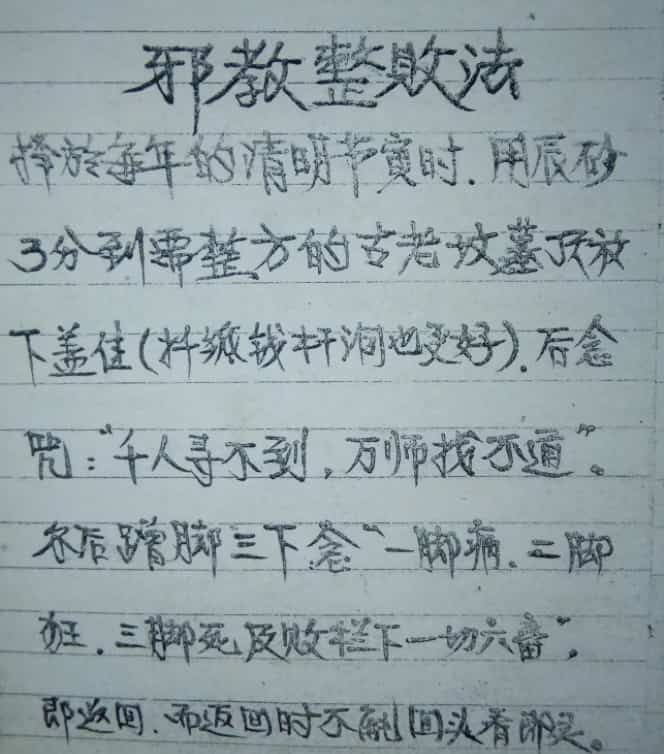 邪教整败法
择於每年的清明节寅时.用辰砂
3分到需整方的古老坟墓顶放
下盖住(扦纸钱杆洞也更好).后念
咒:"千人寻不到,万师找不通"。
然后蹭脚三下念"一脚痛.二脚
狂.三脚死及败栏下一切六畜",
即返回.而返回时不能回头看即是。